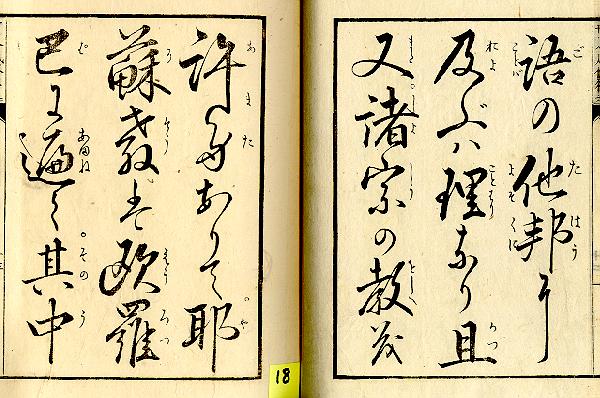 語の他邦に
及ぶハ理なり且
又諸宗の教も
許多ありて耶
蘇教は歐羅
巴に遍く其中
18